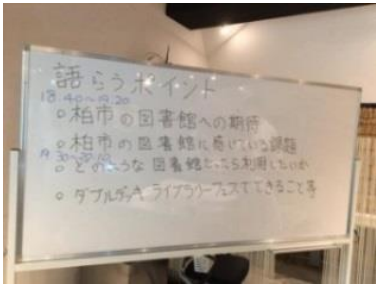 語らうポイント
18:40~19:20
○柏市の図書館への期待
○柏市の図書館に感じている課題
○どのような図書館だったら利用したいか
○ダブルデッキライブラリーフェスでできること等